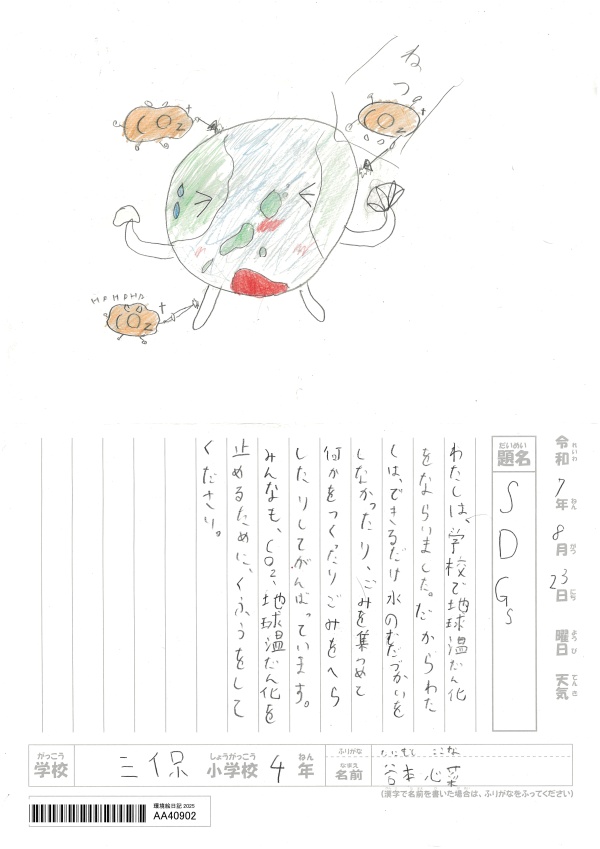 ねつ
CO2
CO2
HAHAHA
CO2
令和 れいわ 7年 ねん 8月 がつ 23日 にち 曜日 ようび 天気 てんき
だいめい
題名
SDGs
わたしは、学校で地球温だん化
をならいました。だからわた
しは、できるだけ水のむだづかいを
しなかったり、ごみを集つめて
何かをつくったりごみをへら
したりしてがんばっています。
みんなも、CO2、地球温だん化を
止めるために、くふうをして
ください。
がっこう
学校
三保 小学校 しょうがっこう 4年 ねん
ふりがな たにもと ここな
なまえ
名前 谷本 心菜
(漢字で名前を書いた場合は、ふりがなをふってください)
環境絵日記 2025
AA40902